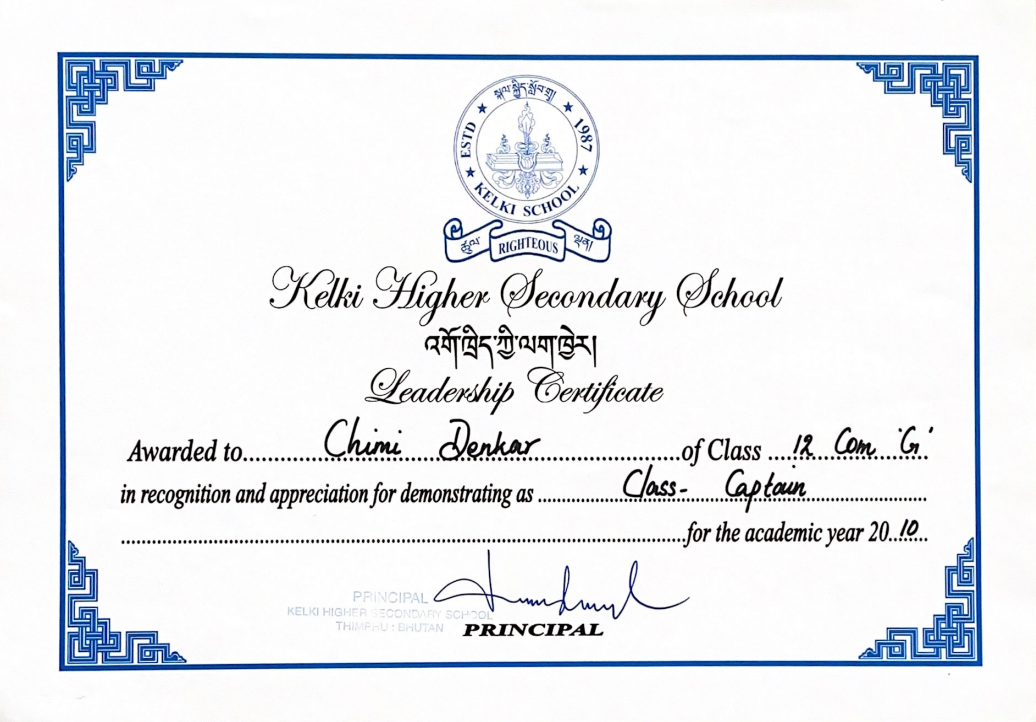 སྐལ་སྐྱིད་སློབ་གྲྭ།
ESTD 1987
KELKI SCHOOL
ཚུལ་ RIGHTEOUS ལྡན།
Kelki Higher Secondary School
འགོ་ཁྲིད་ཀྱི་ལག་ཁྱེར།
Leadership Certificate
Awarded to Chimi Denkar of Class 12 Com 'G'
in recognition and appreciation for demonstrating as Class- Captain
for the academic year 2010
PRINCIPAL
KELKI HIGHER SECONDARY SCHOOL
THIMPHU : BHUTAN
PRINCIPAL